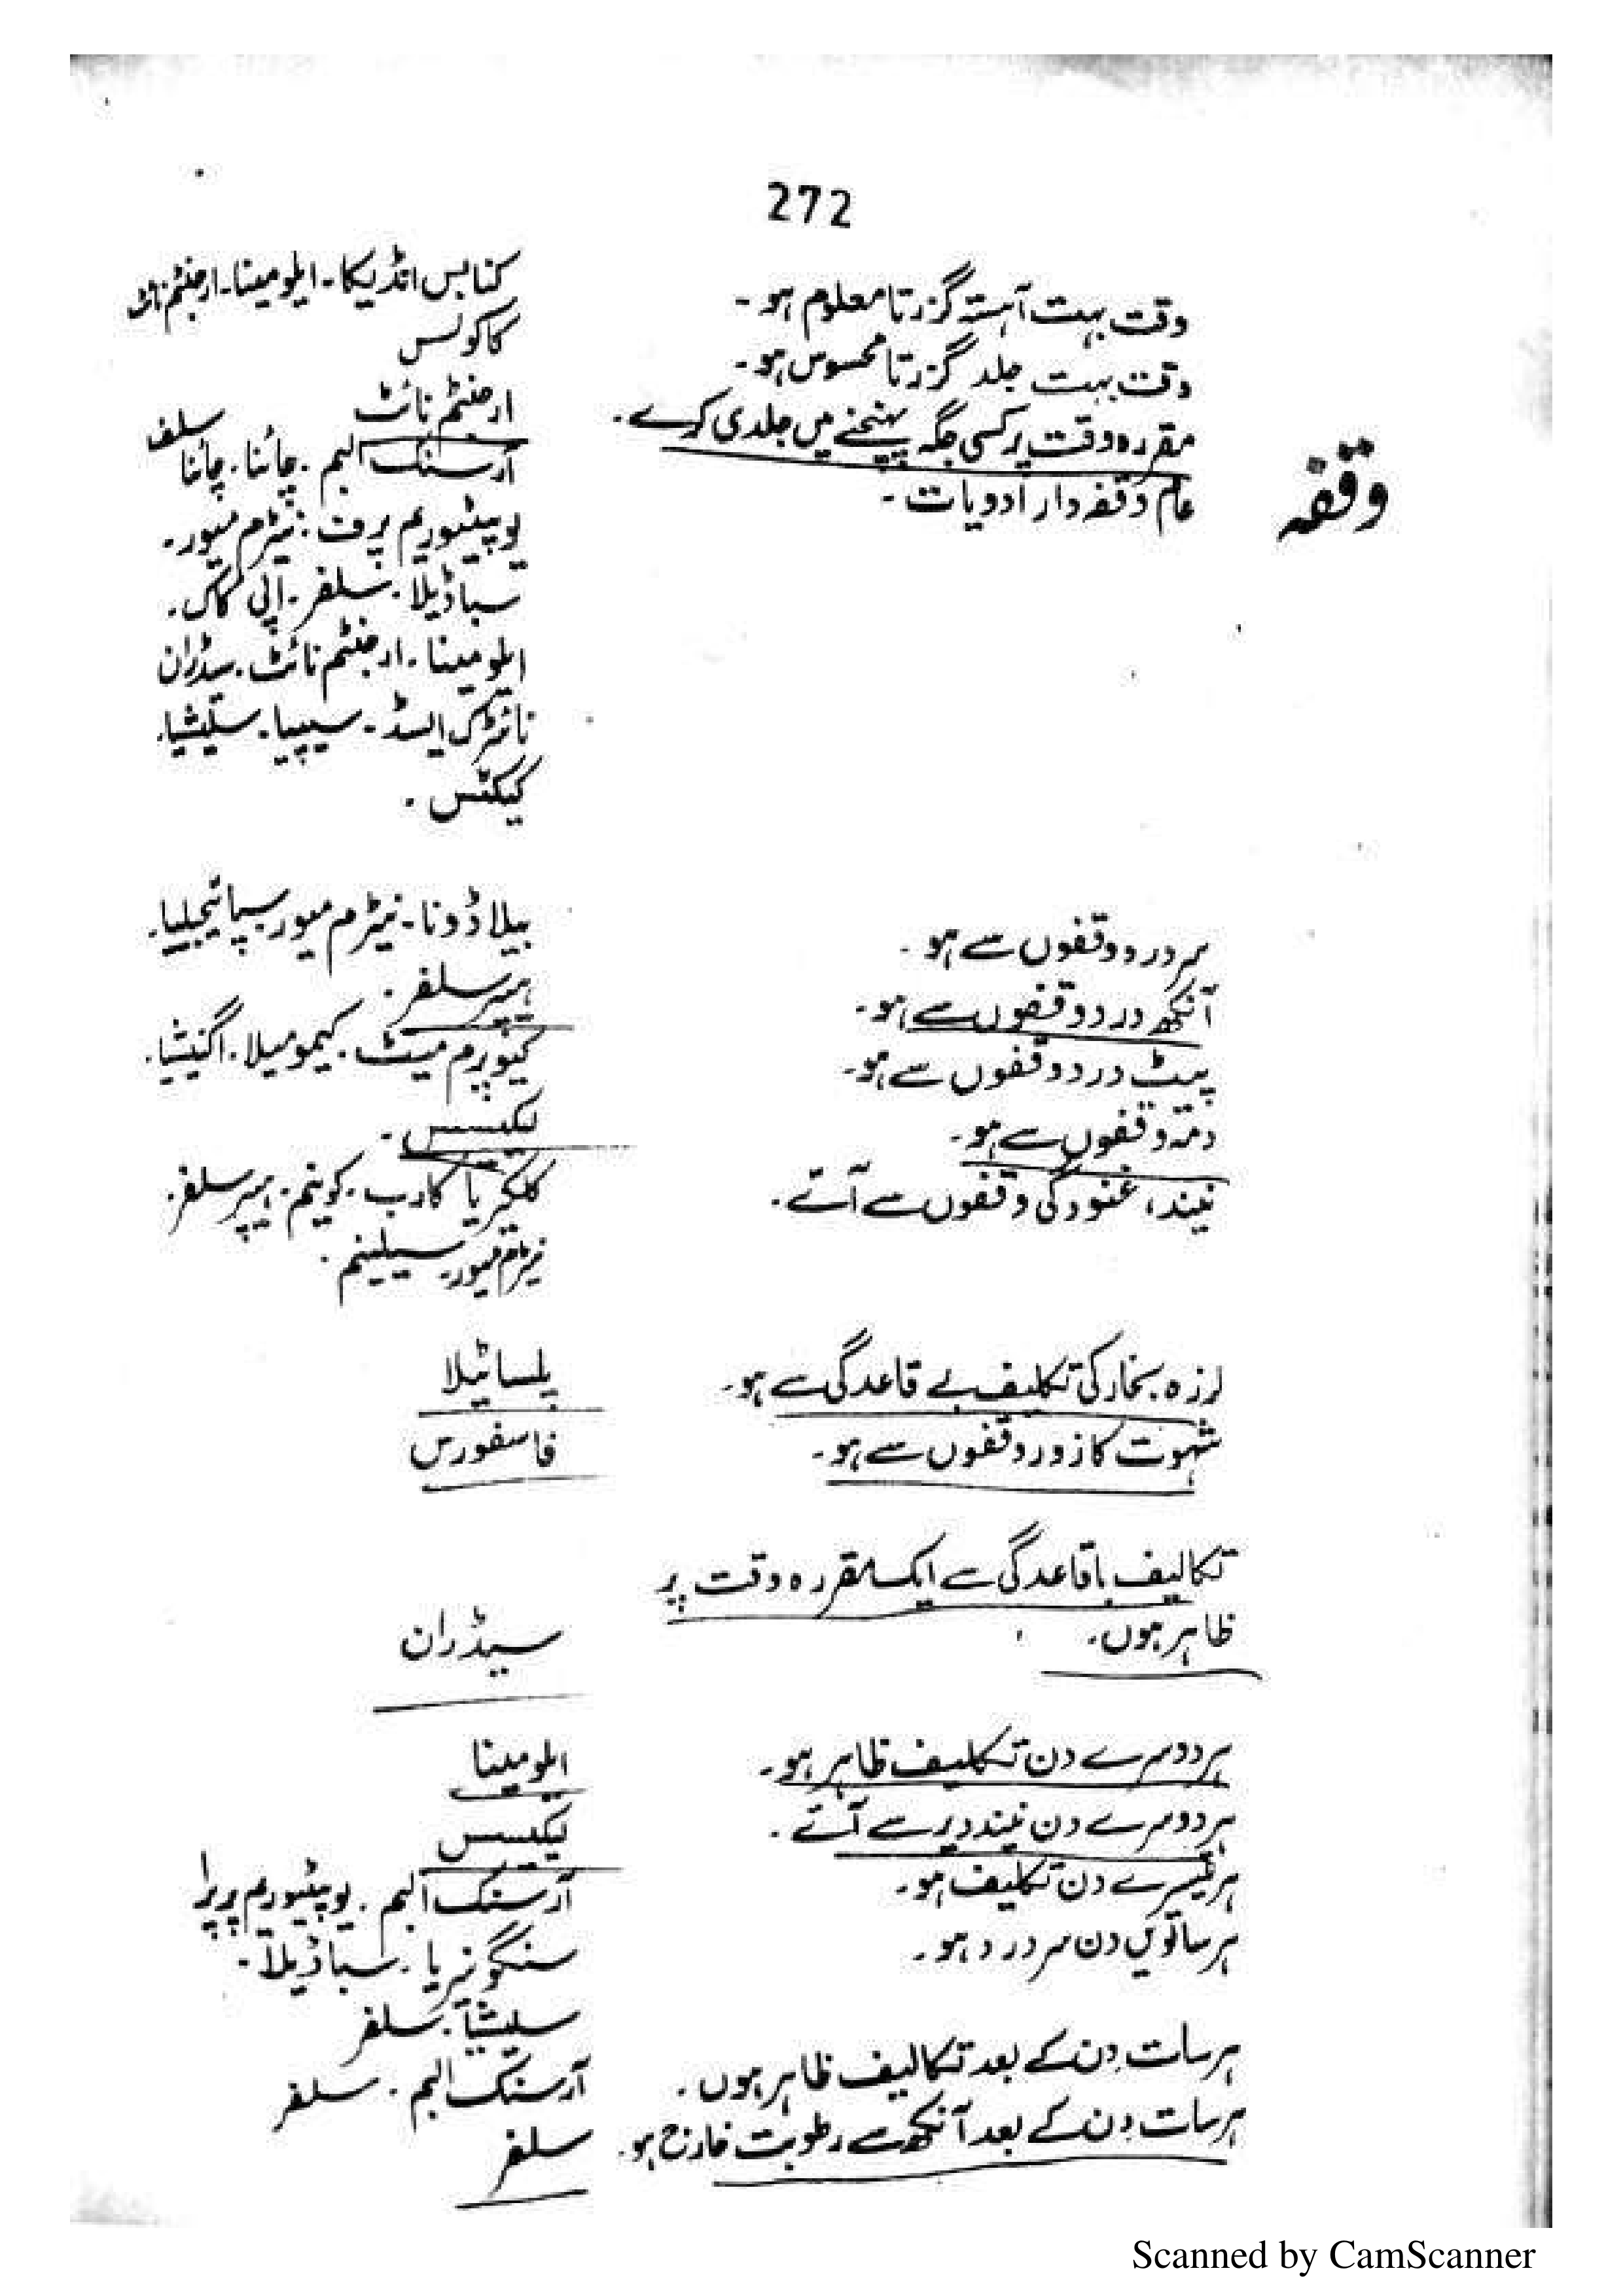 272
وقت بہت آہستہ گزرتا معلوم ہو۔
کنابس انڈیکا۔ ایلومینا۔ ارجنٹم نائٹ
وقت بہت جلد گزرتا محسوس ہو۔
کاکولس
مقررہ وقت پر کسی جگہ پہنچنے میں جلدی کرے۔
ارجنٹم نائٹ
وقفہ
عام وقفہ دار ادویات۔
آرسنک البم۔ چائنا۔ چائنا سلف
یوپیٹوریم پرف۔ نیٹرم میور۔
سباڈیلا۔ سلفر۔ اپی کاک۔
ایلومینا۔ ارجنٹم نائٹ۔ سیڈران
نائٹرک ایسڈ۔ سیپیا۔ سلیشیا۔
کیکٹس۔
سردرد وقفوں سے ہو۔
بیلاڈونا۔ نیٹرم میور۔ سپائیجیلیا۔
آنکھ درد وقفوں سے ہو۔
ہیپر سلفر۔
پیٹ درد وقفوں سے ہو۔
کیوپرم میٹ۔ کیمومیلا۔ اگنیشیا۔
دمہ وقفوں سے ہو۔
لیکیسس۔
نیند، غنودگی وقفوں سے آئے۔
کلکیریا کارب۔ کونیم۔ ہیپر سلفر۔
نیٹرم میور۔ سیلینیم۔
لرزہ بخار کی تکلیف بے قاعدگی سے ہو۔
پلساٹیلا
شہوت کا زور وقفوں سے ہو۔
فاسفورس
تکالیف باقاعدگی سے ایک مقررہ وقت پر
ظاہر ہوں۔
سیڈران
ہر دوسرے دن تکلیف ظاہر ہو۔
ایلومینا
ہر دوسرے دن نیند دیر سے آئے۔
لیکیسس
ہر تیسرے دن تکلیف ہو۔
آرسنک البم۔ یوپیٹوریم پرپرا
ہر ساتویں دن سر درد ہو۔
سنگونیریا۔ سباڈیلا۔
سلیشیا۔ سلفر
ہر سات دن کے بعد تکالیف ظاہر ہوں۔
آرسنک البم۔ سلفر
ہر سات دن کے بعد آنکھ سے رطوبت خارج ہو۔
سلفر
Scanned by CamScanner